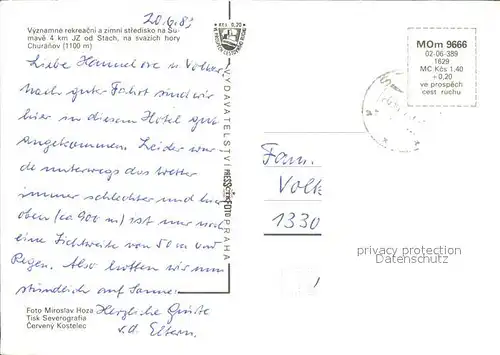 20.6.83
Významné rekreační a zimní středisko na Šu-
mavě 4 km JZ od Stach, na svazích hory
Churáňov (1100 m)
Liebe Hannelore u. Volker!
nach guter Fahrt sind wir
hier in diesem Hotel gut
angekommen. Leider wur-
de unterwegs das Wetter
immer schlechter und hier
oben (ca 900 m) ist nur noch
eine Sichtweite von 50 m und
Regen. Also hoffen wir nun
stündlich auf Sonne.
Herzliche Grüße
v. d. Eltern.
Foto Miroslav Hoza
Tisk Severografia
Červený Kostelec
Kčs 0,20
VYDAVATELSTVÍ PRESSFOTO PRAHA
MOm 9666
02-06-389
1629
MC Kčs 1,40
+0,20
ve prospěch
cest. ruchu
Fam.
Volk
1330
privacy protection
Datenschutz
oldthing.de